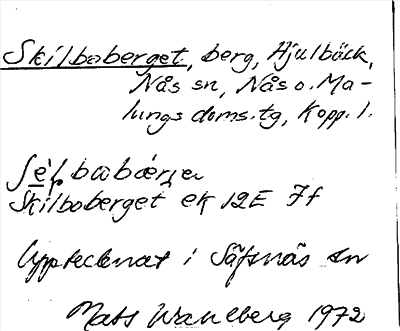 Skilboberget, berg, Hjulbäck,
Nås sn, Nås o. Ma-
lungs doms.tg, Kopp. l.
Skilboberget ek 12E 7f
Upptecknat i Säfsnäs sn
Mats Wahlberg 1972